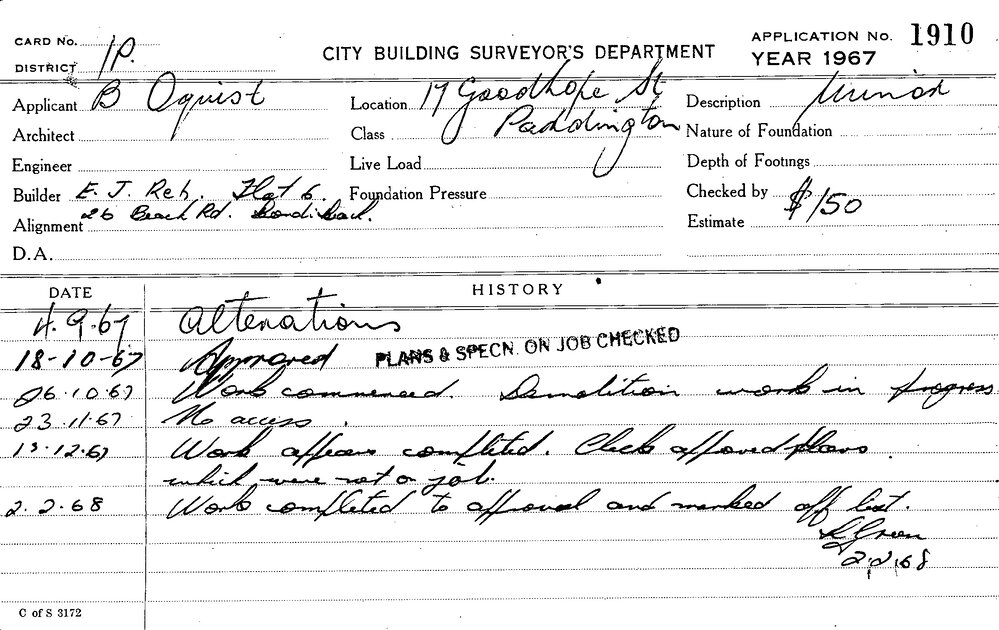 CARD No.
DISTRICT 1P.
CITY BUILDING SURVEYOR'S DEPARTMENT
APPLICATION No. 1910
YEAR 1967
Applicant B Oquist
Location 17 Goodhope St
Paddington
Description Minor
Architect
Class
Nature of Foundation
Engineer
Live Load
Depth of Footings
Builder E. J. Reh. Flat 6.
26 Beach Rd. Bondi Beach.
Foundation Pressure
Checked by
Alignment
Estimate $150
D.A.
DATE HISTORY
4.9.67 Alterations
18-10-67 Approved PLANS & SPECN. ON JOB CHECKED
26.10.67 Work commenced. Demolition work in progress
23.11.67 No access.
13.12.67 Work appears completed. Check approved plans
which were not on job.
2.2.68 Work completed to approval and marked off list.
Green
2.2.68
C of S 3172